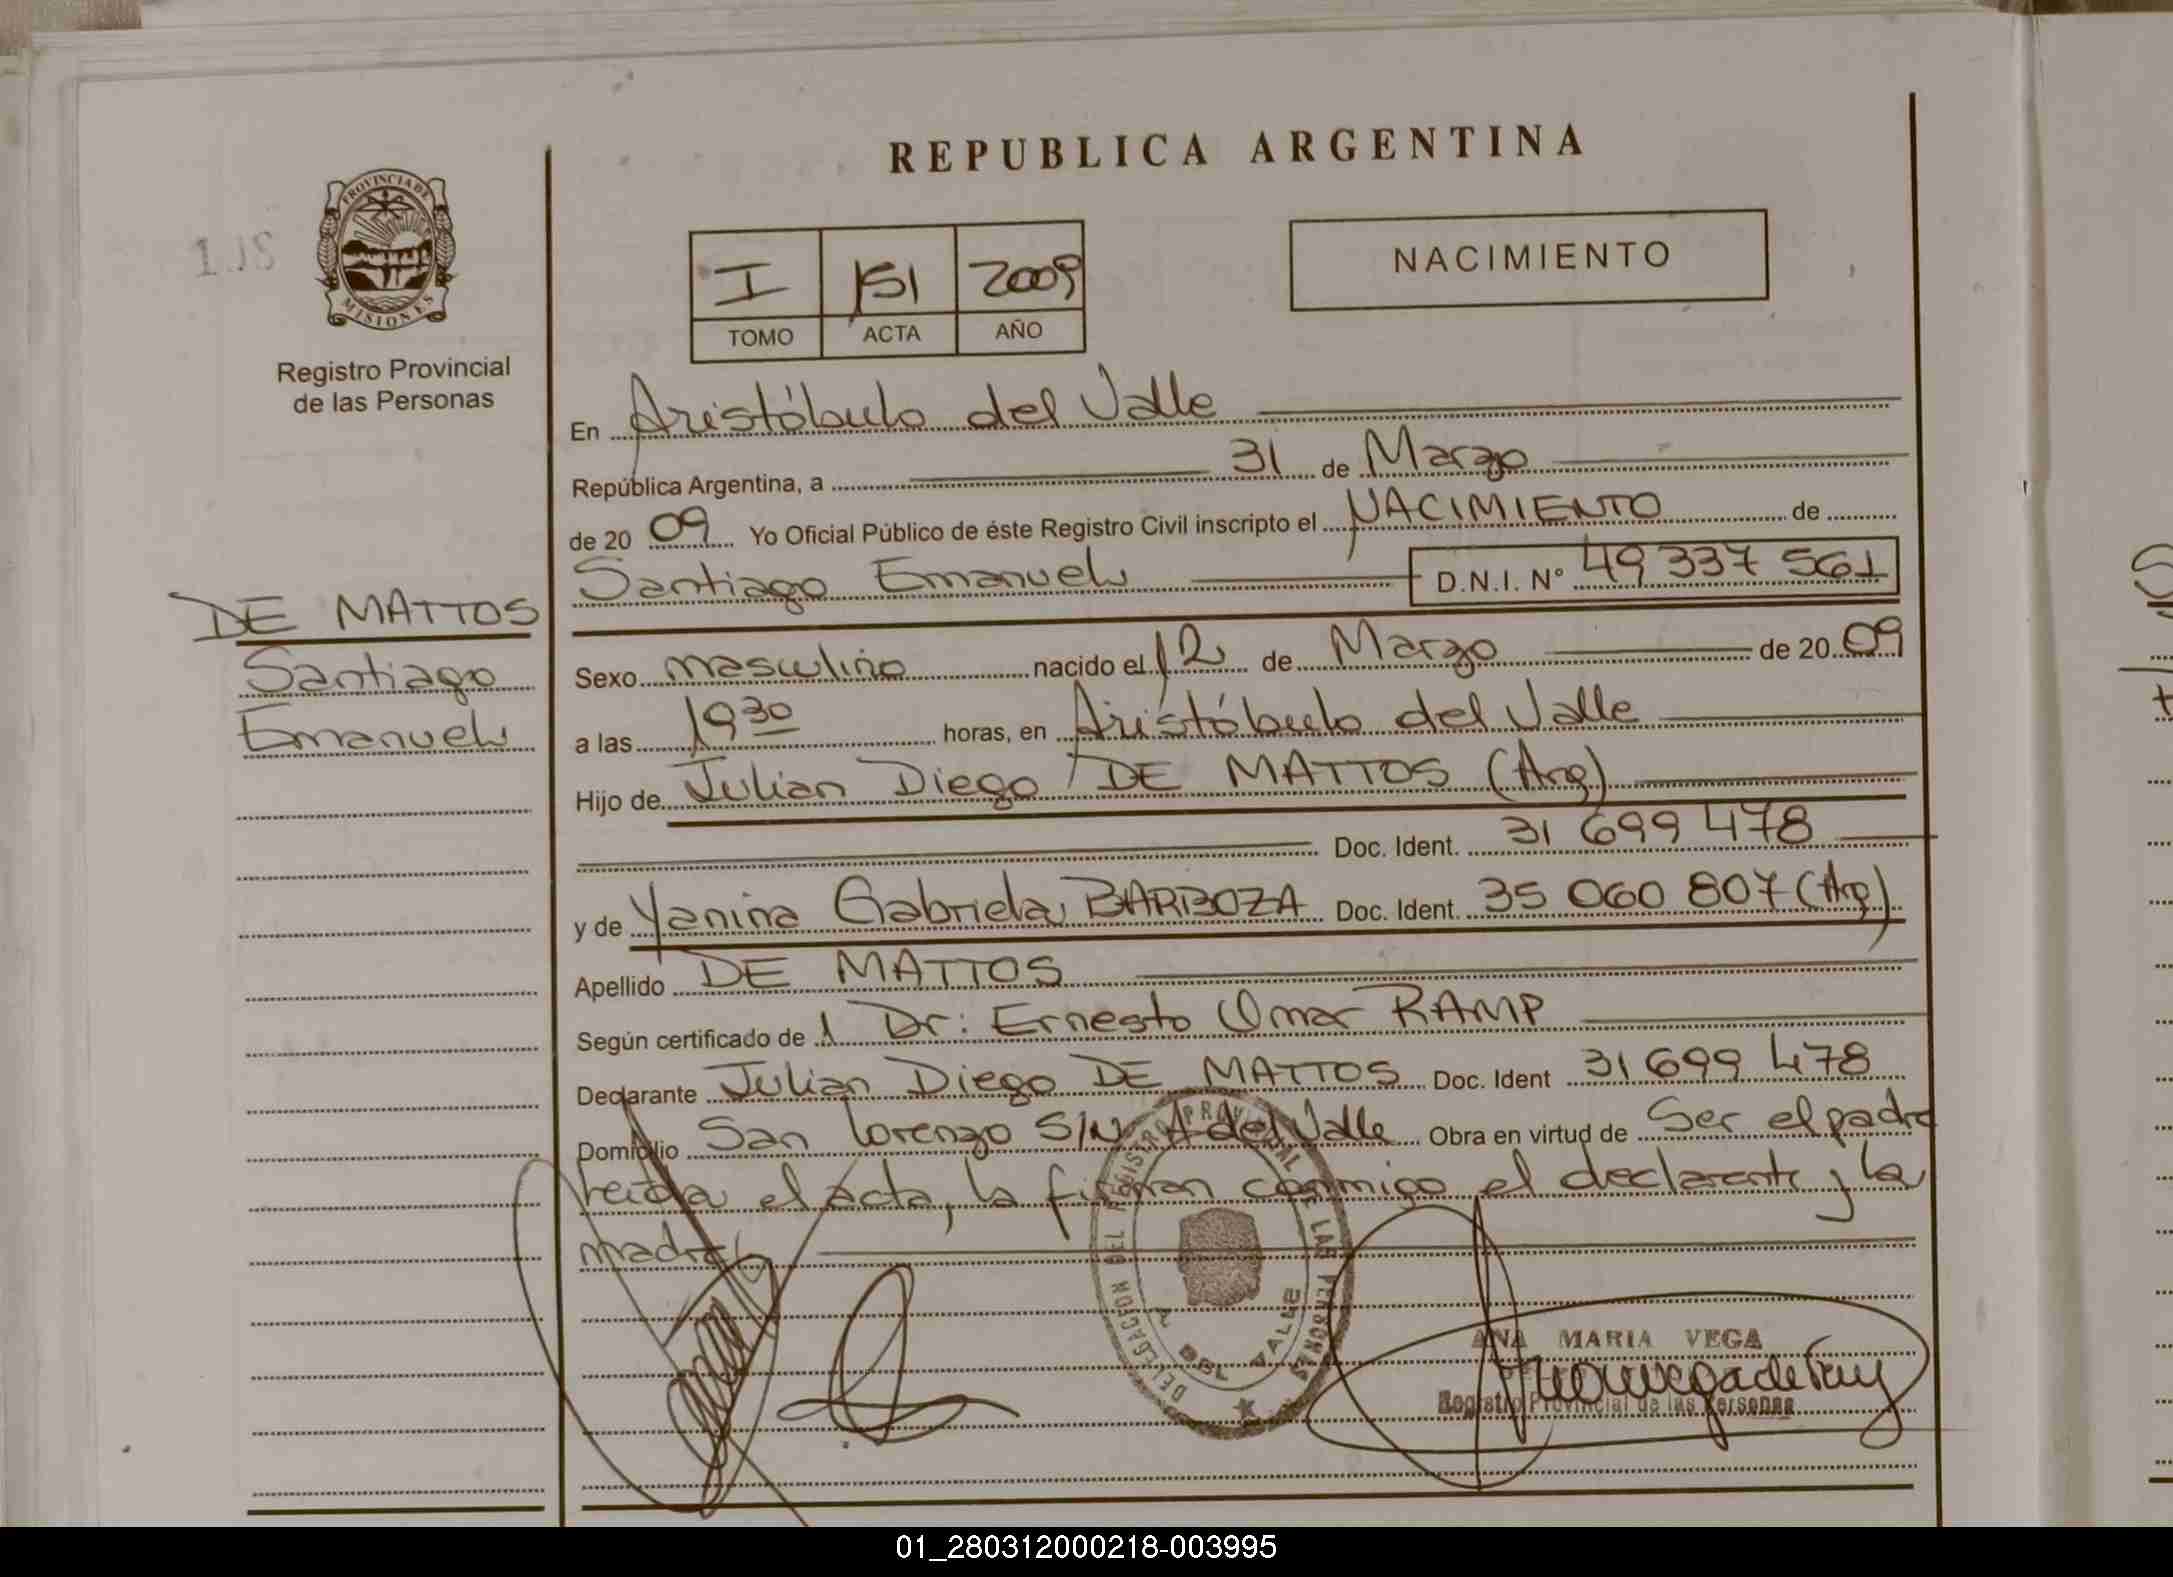 REPUBLICA ARGENTINA
PROVINCIA DE
MISIONES
Registro Provincial
de las Personas
I 151 2009
TOMO ACTA AÑO
NACIMIENTO
En Aristóbulo del Valle
República Argentina, a 31 de Marzo
de 20 09 Yo Oficial Público de éste Registro Civil inscripto el NACIMIENTO de
Santiago Emanuel D.N.I. N° 49 337 561
DE MATTOS
Santiago
Emanuel
Sexo masculino nacido el 12 de Marzo de 20 09
a las 19 30 horas, en Aristóbulo del Valle
Hijo de Julian Diego DE MATTOS (Arg)
Doc. Ident. 31 699 478
y de Yanina Gabriela BARBOZA Doc. Ident. 35 060 807 (Arg)
Apellido DE MATTOS
Según certificado de Dr: Ernesto Omar RAMP
Declarante Julian Diego DE MATTOS Doc. Ident 31 699 478
Domicilio San Lorenzo S/N A del Valle Obra en virtud de Ser el padre
leida el acta, la firman conmigo el declarante y la
madre
DELEGACION DEL REGISTRO PROVINCIAL DE LAS PERSONAS
A DEL VALLE
ANA MARIA VEGA
Registro Provincial de las Personas
01_280312000218-003995